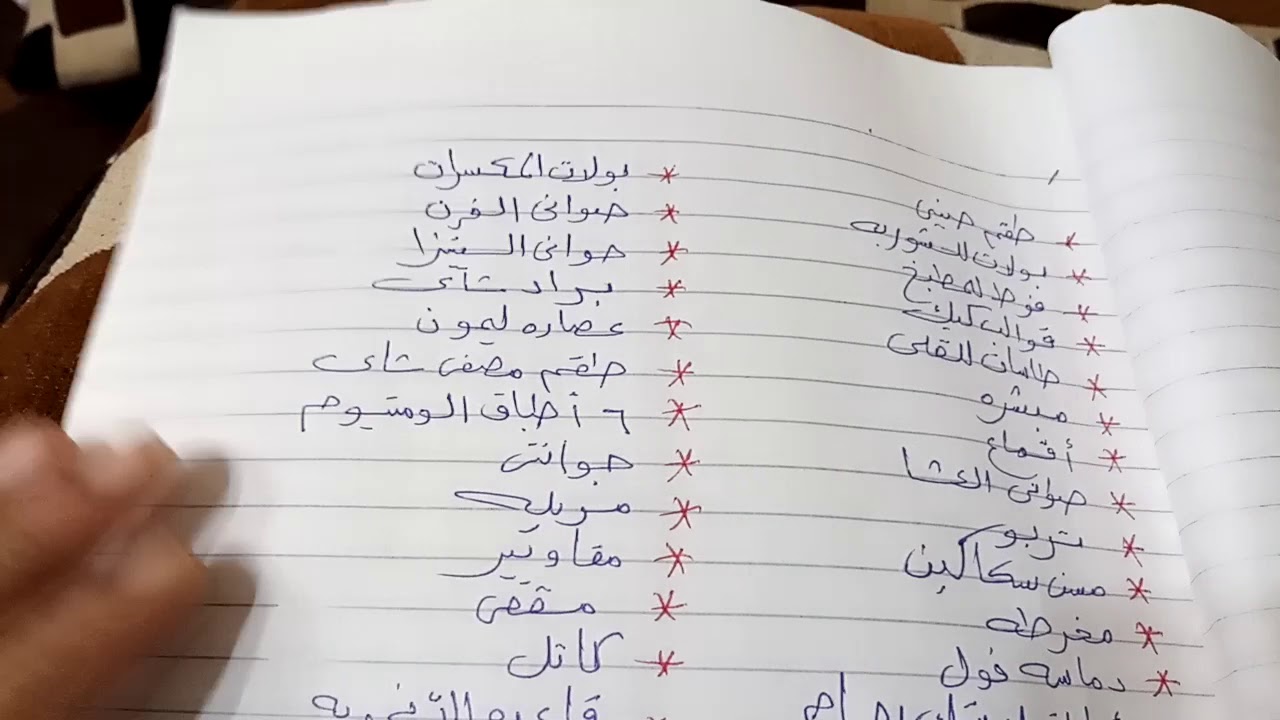 * طقم صينى
* بولات للشوربه
* فوط لمطبخ
* قوالب كيك
* طاسات للقلى
* مبشره
* أقماع
* صوانى العشا
* تربو
* مسن سكاكين
* مخرطه
* دماسه فول
* بولات المكسرات
* صوانى الفرن
* صوانى البيتزا
* براد شاى
* عصاره ليمون
* طقم مصفى شاى
* ٦ أطباق الومنتيوم
* جوانتى
* مريله
* مقاوير
* مقص
* كاتل